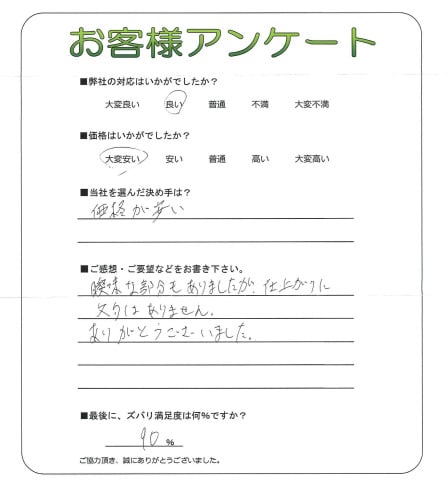 お客様アンケート
■弊社の対応はいかがでしたか?
大変良い 良い 普通 不満 大変不満
■価格はいかがでしたか?
大変安い 安い 普通 高い 大変高い
■当社を選んだ決め手は?
価格が安い
■ご感想・ご要望などをお書き下さい。
曖昧な部分もありましたが、仕上がりに
文句はありません。
ありがとうございました。
■最後に、ズバリ満足度は何%ですか?
90 %
ご協力頂き、誠にありがとうございました。